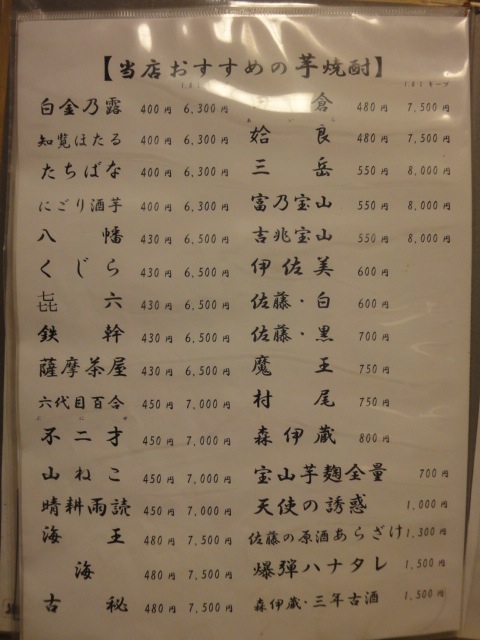 【当店おすすめの芋焼酎】
白金乃露 400円 6,300円
知覧ほたる 400円 6,300円
たちばな 400円 6,300円
にごり酒芋 400円 6,300円
八幡 430円 6,500円
くじら 430円 6,500円
六 430円 6,500円
鉄幹 430円 6,500円
薩摩茶屋 430円 6,500円
六代目百合 450円 7,000円
不二才 450円 7,000円
山ねこ 450円 7,000円
晴耕雨読 450円 7,000円
海王 480円 7,500円
海 480円 7,500円
古秘 480円 7,500円
倉 480円 7,500円
姶良 480円 7,500円
三岳 550円 8,000円
富乃宝山 550円 8,000円
吉兆宝山 550円 8,000円
伊佐美 600円
佐藤・白 600円
佐藤・黒 700円
魔王 750円
村尾 750円
森伊蔵 800円
宝山芋麹全量 700円
天使の誘惑 1,000円
佐藤の原酒あらざけ 1,300円
爆弾ハナタレ 1,500円
森伊蔵・三年古酒 1,500円